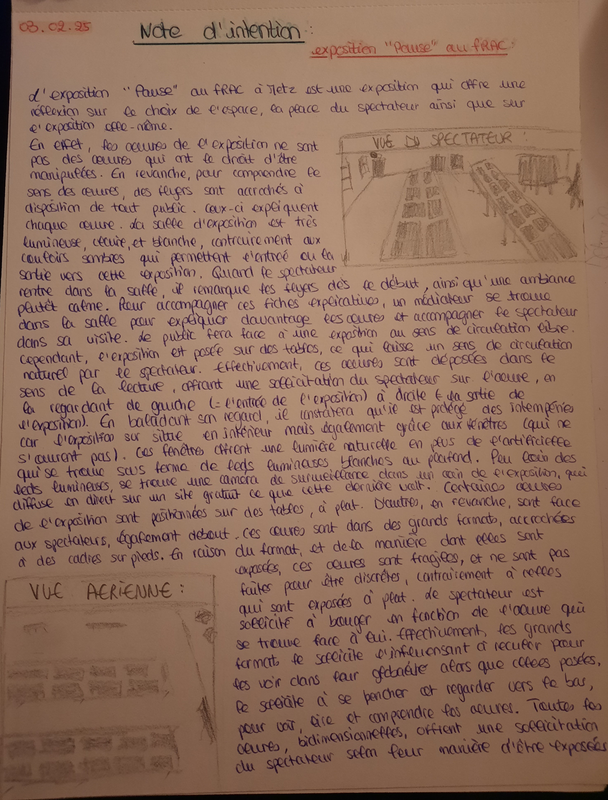 03.02.25
Note d'intention :
exposition "Pause" au FRAC :
L'exposition "Pause" au FRAC à Metz est une exposition qui offre une
réflexion sur le choix de l'espace, la place du spectateur ainsi que sur
l'exposition elle-même.
En effet, les oeuvres de l'exposition ne sont
pas des oeuvres qui ont le droit d'être
manipulées. En revanche, pour comprendre le
sens des oeuvres, des flyers sont accrochés à
disposition de tout public. Ceux-ci expliquent
chaque oeuvre. La salle d'exposition est très
lumineuse, et blanche, contrairement aux
couloirs sombres qui permettent l'entrée ou la
sortie vers cette exposition. Quand le spectateur
VUE DU SPECTATEUR :
rentre dans la salle, il remarque les flyers dès le début, ainsi qu'une ambiance
plutôt calme. Pour accompagner ces fiches explicatives, un médiateur se trouve
dans la salle pour expliquer davantage les oeuvres et accompagner le spectateur
dans sa visite. Le public fera face à une exposition au sens de circulation libre.
Cependant, l'exposition est posée sur des tables, ce qui laisse un sens de circulation
naturel par le spectateur. Effectivement, ces oeuvres sont déposées dans le
sens de la lecture, offrant une sollicitation du spectateur sur l'oeuvre, en
la regardant de gauche (= l'entrée de l'exposition) à droite (= la sortie de
l'exposition). En baladant son regard, il constatera qu'il est protégé des intempéries
car l'exposition se situe en intérieur mais également grâce aux fenêtres (qui ne
s'ouvrent pas). Ces fenêtres offrent une lumière naturelle en plus de l'artificielle
qui se trouve sous forme de leds lumineuses blanches au plafond. Peu loin des
leds lumineuses, se trouve une caméra de surveillance dans un coin de l'exposition, qui
diffuse en direct sur un site gratuit ce que cette dernière voit. Certaines oeuvres
de l'exposition sont positionnées sur des tables, à plat. D'autres, en revanche, sont face
aux spectateurs, également debout. Ces oeuvres sont dans des grands formats, accrochées
à des cadres sur pieds. En raison du format, et de la manière dont elles sont
exposées, ces oeuvres sont fragiles, et ne sont pas
faites pour être discrètes, contrairement à celles
qui sont exposées à plat. Le spectateur est
sollicité à bouger en fonction de l'oeuvre qui
se trouve face à lui. Effectivement, les grands
formats le sollicite l'influençant à reculer pour
les voir dans leur globalité alors que celles posées,
le sollicite à se pencher et regarder vers le bas,
pour voir, lire et comprendre les oeuvres. Toutes les
oeuvres, bidimensionnelles, offrent une sollicitation
du spectateur selon leur manière d'être exposées
VUE AERIENNE :